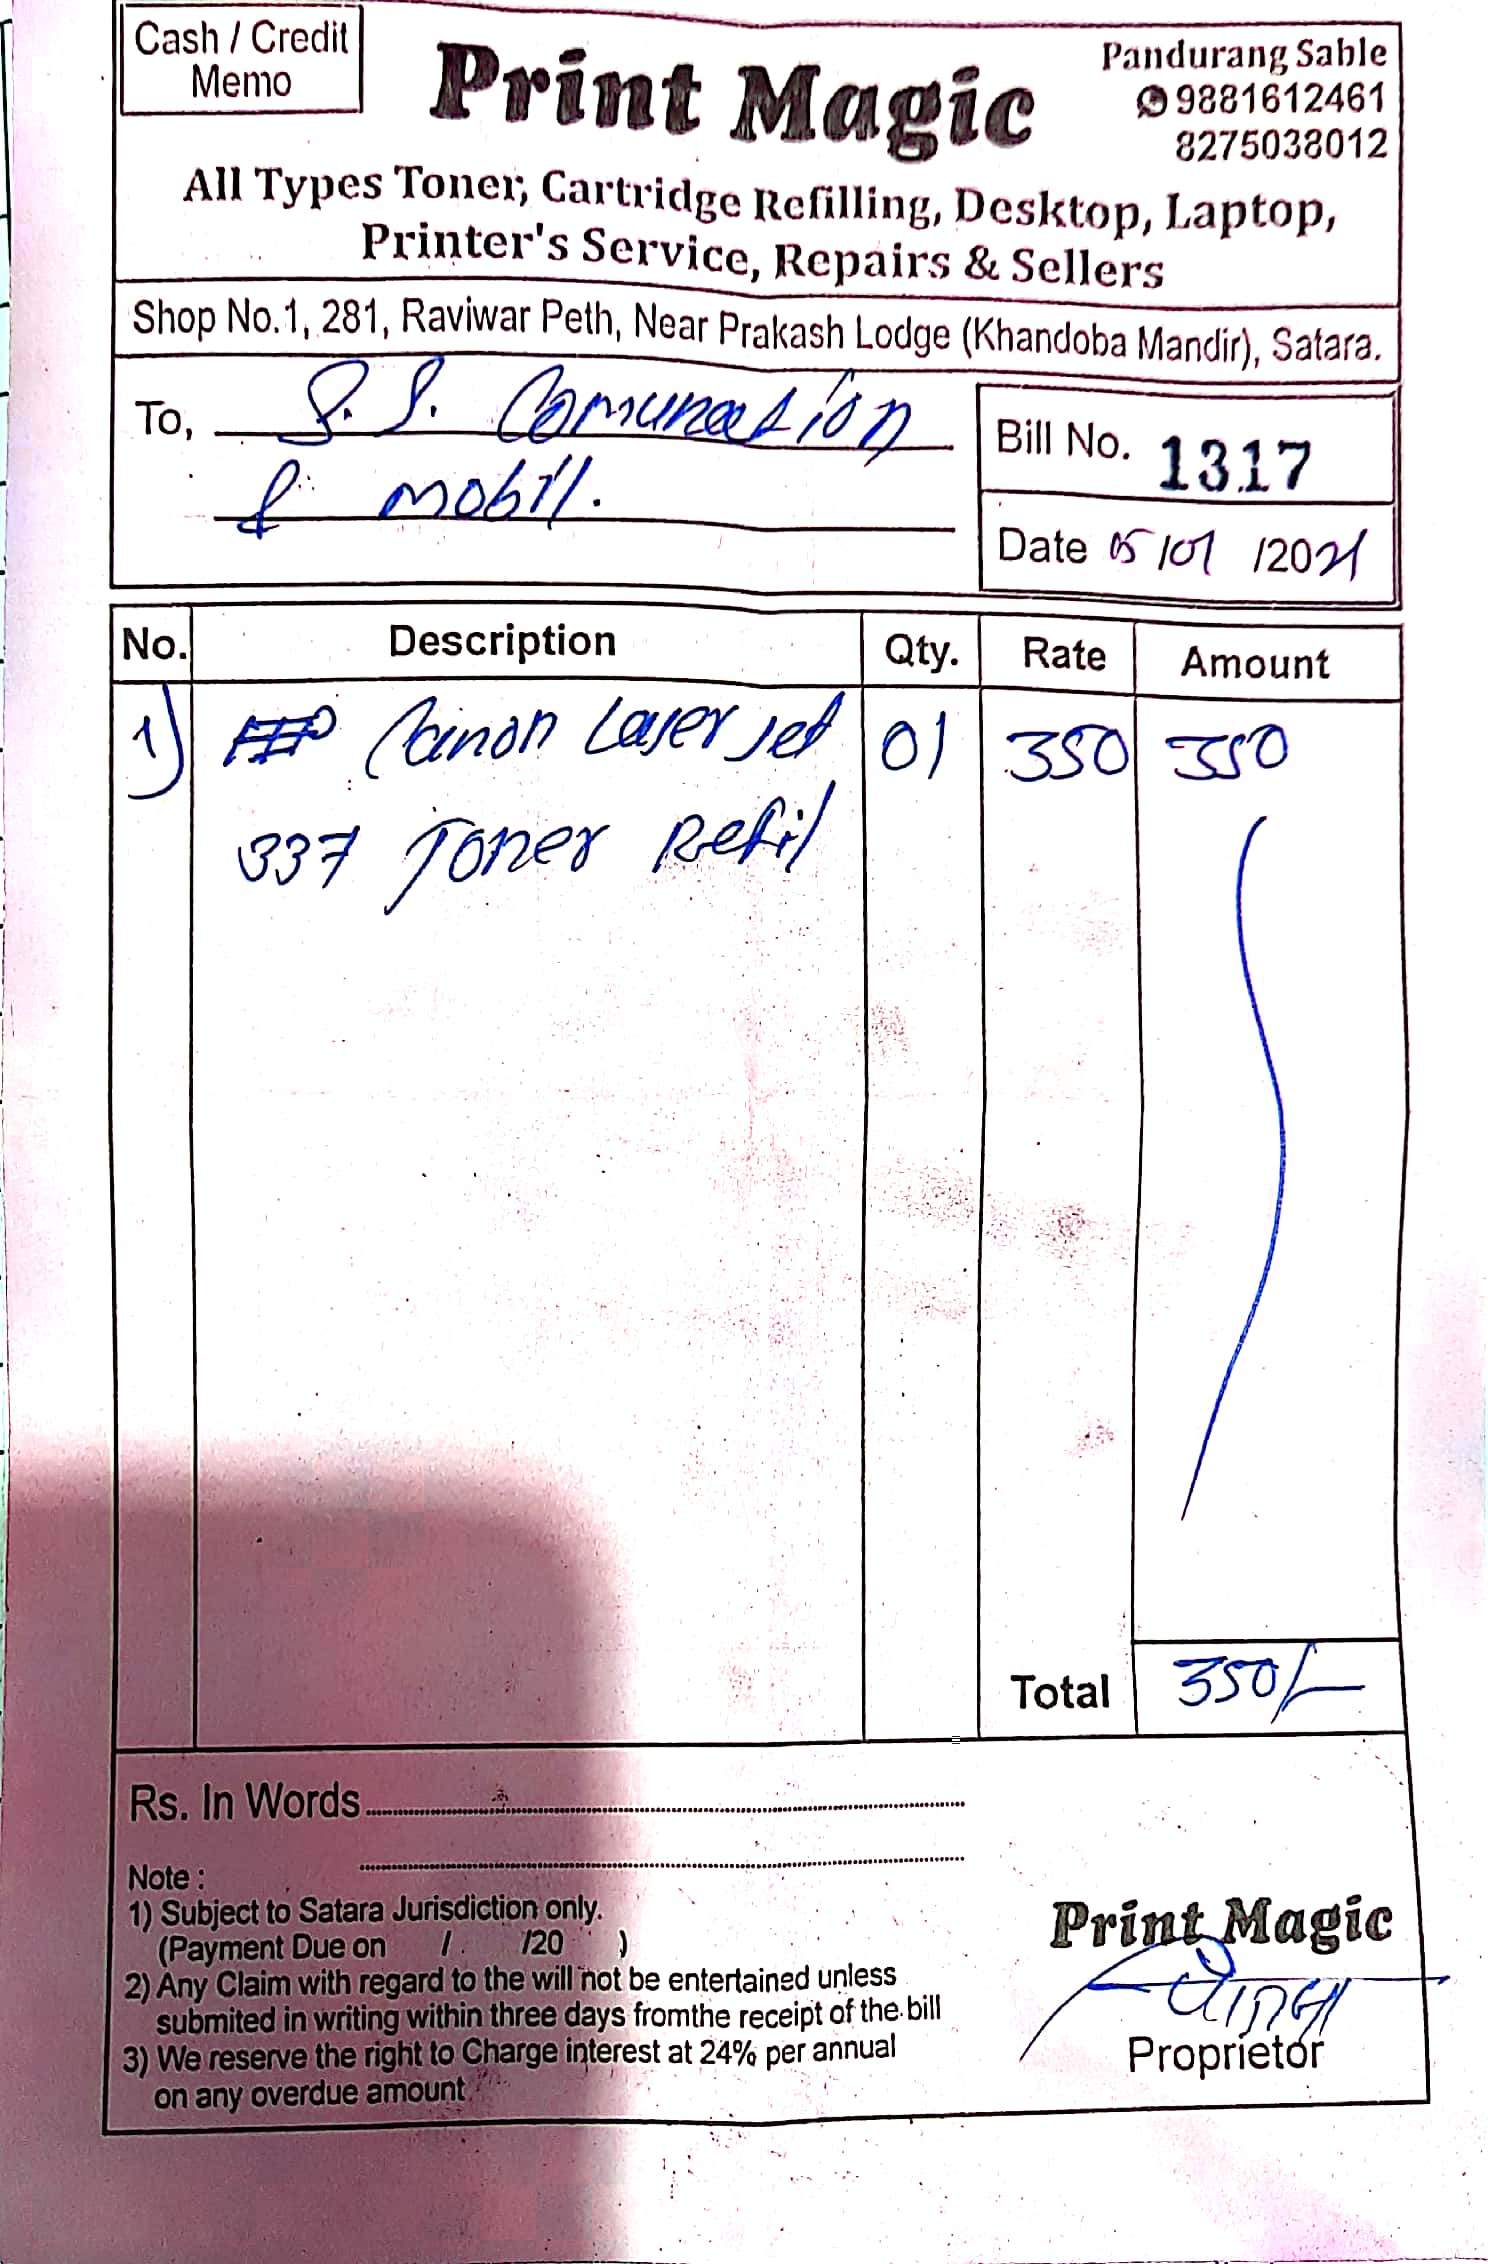 Cash / Credit
Memo
Print Magic
Pandurang Sable
9881612461
8275038012
All Types Toner, Cartridge Refilling, Desktop, Laptop,
Printer's Service, Repairs & Sellers
Shop No.1, 281, Raviwar Peth, Near Prakash Lodge (Khandoba Mandir), Satara.
To, S. S. Comunection
& mobill.
Bill No. 1317
Date 05/01/2021
No. Description Qty. Rate Amount
1) Canon Laser Jet 01 350 350
337 Toner Refil
Total 350/-
Rs. In Words
Note :
1) Subject to Satara Jurisdiction only.
(Payment Due on / /20 )
2) Any Claim with regard to the will not be entertained unless
submited in writing within three days fromthe receipt of the bill
3) We reserve the right to Charge interest at 24% per annual
on any overdue amount
Print Magic
Proprietor